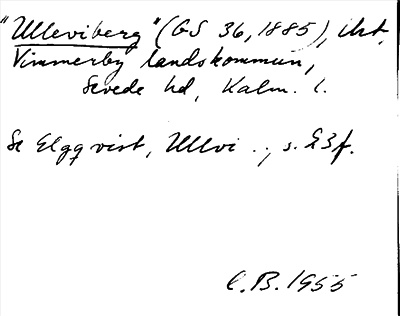 "Ulleviberg" (GS 36, 1885), i hst,
Vimmerby landskommun,
Sevede hd, Kalm. l.
Se Elgqvist, Ullvi .., s. 23f.
C.B. 1955